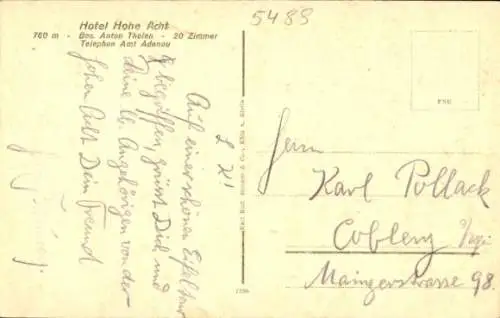 Hotel Hohe Acht
760 m - Bes. Anton Thelen - 20 Zimmer
Telephon Amt Adenau
5489
L K!
Auf einer schönen Eifeltour
begriffen, grüsst Dich und
deine lb. Angehörigen von der
hohen Acht Dein Freund
Herrn
Karl Pollack
Coblenz
Mainzerstrasse 98.